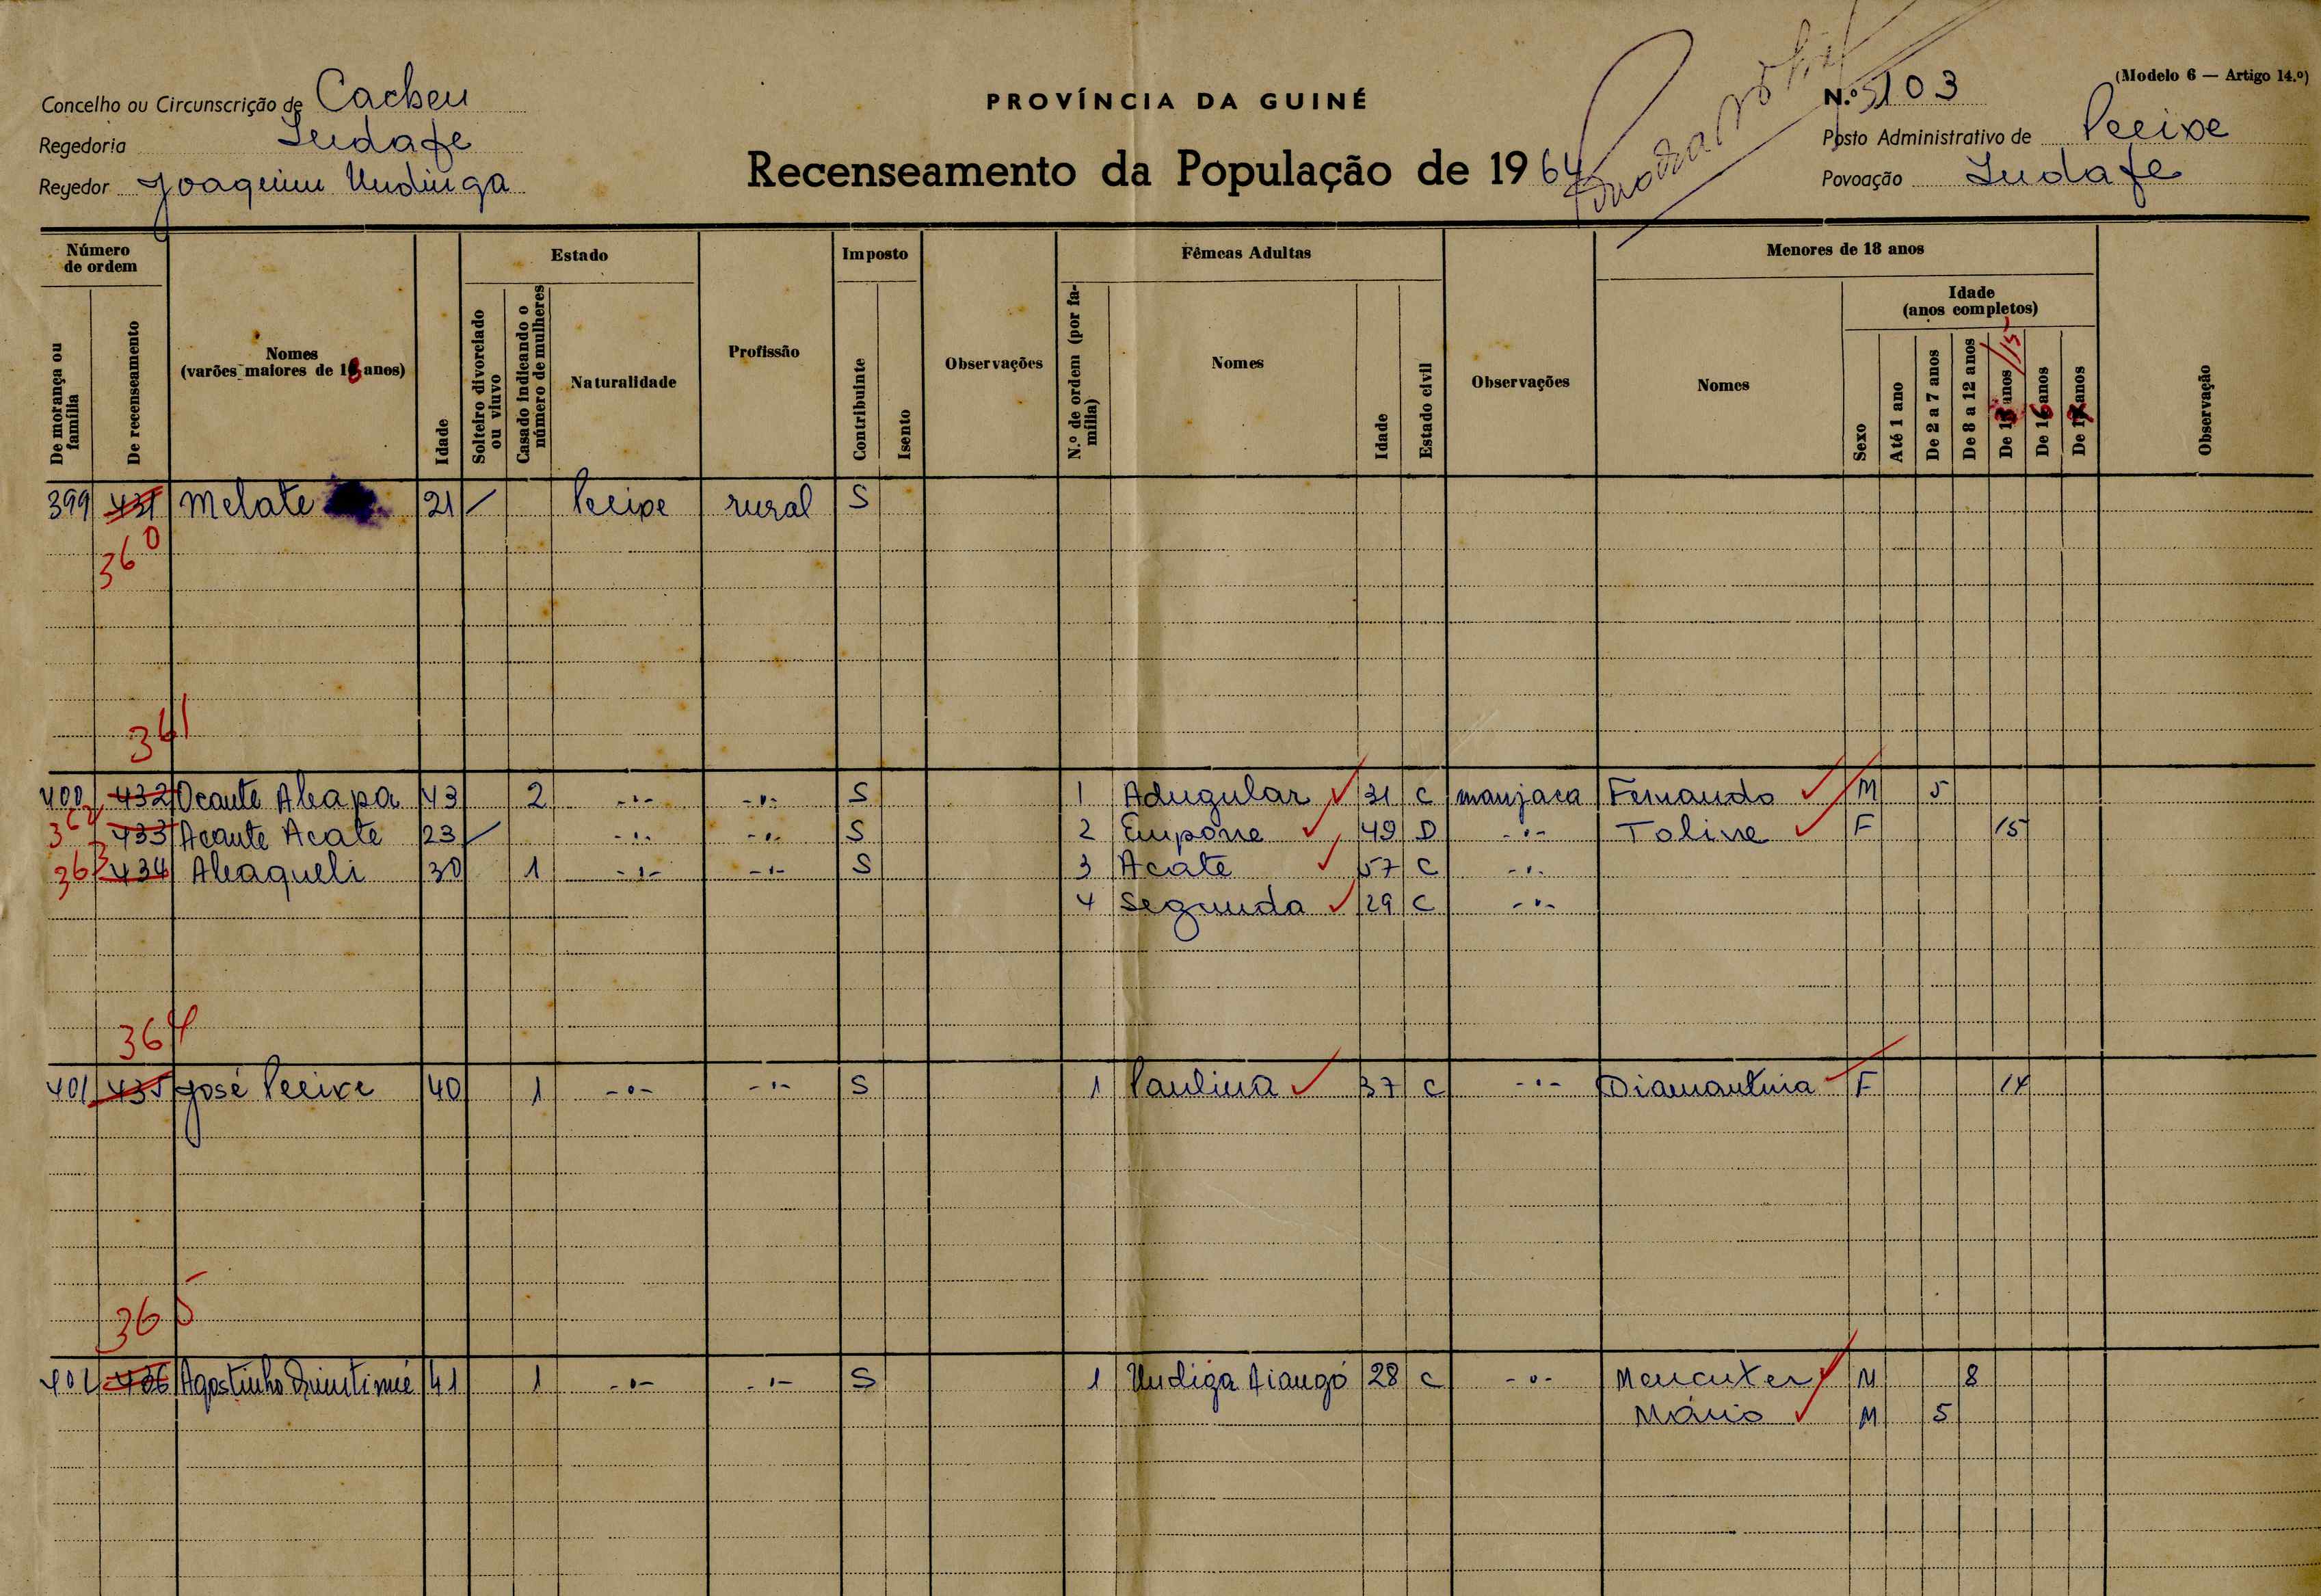 (Modelo 6 — Artigo 14.º)
Concelho ou Circunscrição de Cacheu
PROVÍNCIA DA GUINÉ
N.º 5103
Regedoria Iudafe
Posto Administrativo de Pecixe
Recenseamento da População de 1964
Regedor Joaquim Undinga
Povoação Iudafe
Número de ordem
Estado
Imposto
Fêmeas Adultas
Menores de 18 anos
De morança ou família
De recenseamento
Nomes (varões maiores de 18 anos)
Idade
Solteiro divorciado ou viuvo
Casado indicando o número de mulheres
Naturalidade
Profissão
Contribuinte
Isento
Observações
N.º de ordem (por família)
Nomes
Idade
Estado civil
Observações
Nomes
Sexo
Idade (anos completos)
Até 1 ano
De 2 a 7 anos
De 8 a 12 anos
De 13 anos /15
De 16 anos
De 17 anos
Observação
399 431 Melate 21 / Pecixe rural S
360
361
400 432 Ocante Aliapa 43 2 -"- -"- S 1 Adugular 31 C manjaca Fernando M 5
362 433 Acante Acate 23 / -"- -"- S 2 Empone 49 D -"- Toline F 15
363 434 Aliaqueli 30 1 -"- -"- S 3 Acate 57 C -"-
4 Segunda 29 C -"-
364
401 435 José Pecixe 40 1 -"- -"- S 1 Paulina 37 C -"- Diamantina F 14
365
402 436 Agostinho Quintimé 41 1 -"- -"- S 1 Undiga Aiangó 28 C -"- M 8
Mário M 5